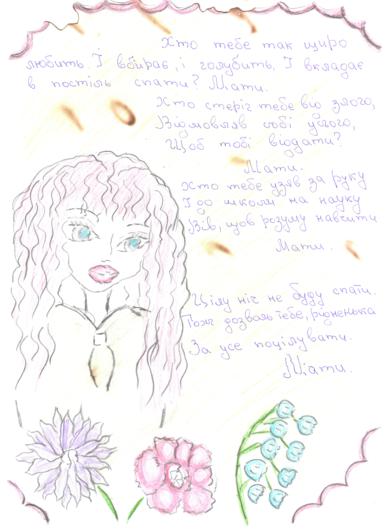 Хто тебе так щиро
любить. І вбирає, і голубить. І вкладає
в постіль спати? Мати.
Хто стеріг тебе від злого,
Відмовляв собі усього,
Щоб тобі віддати?
Мати.
Хто тебе узяв за руку
І до школи на науку
Вів, щоб розуму навчити
Мати.
Цілу ніч не буду спати.
дозволь тебе, рідненька
За усе поцілувати.
Мати.